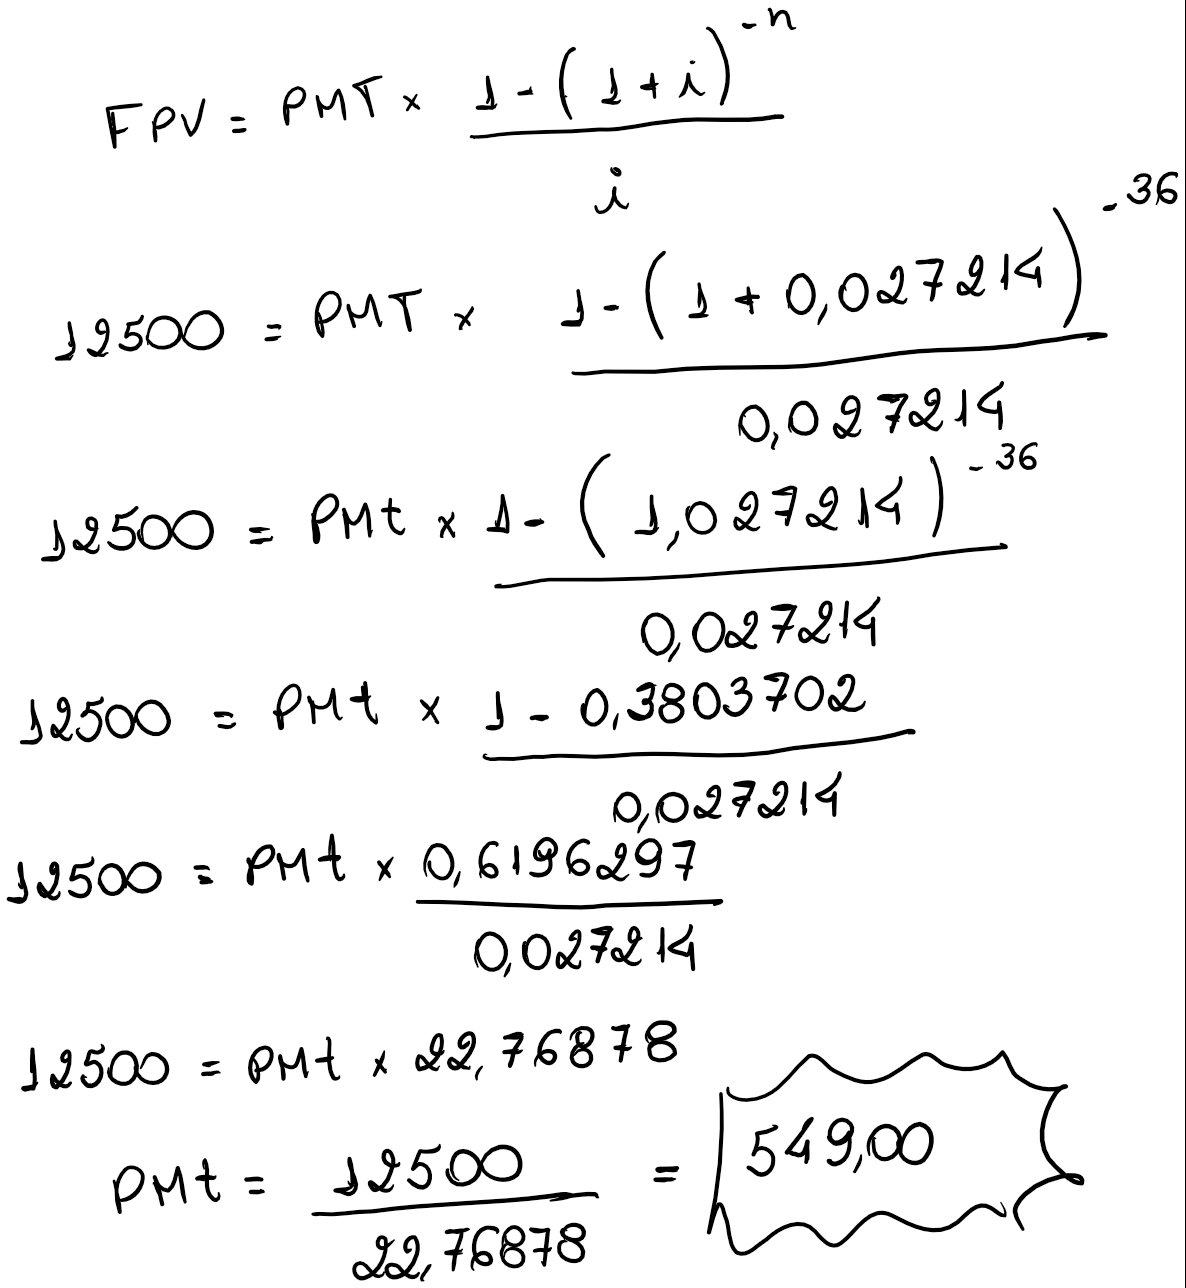 FPV = PMT × 1 - (1 + i)^-n / i
12500 = PMT × 1 - (1 + 0,027214)^-36 / 0,027214
12500 = PMt × 1 - (1,027214)^-36 / 0,027214
12500 = PMt × 1 - 0,3803702 / 0,027214
12500 = PMt × 0,6196297 / 0,027214
12500 = PMt × 22,76878
PMt = 12500 / 22,76878 = 549,00